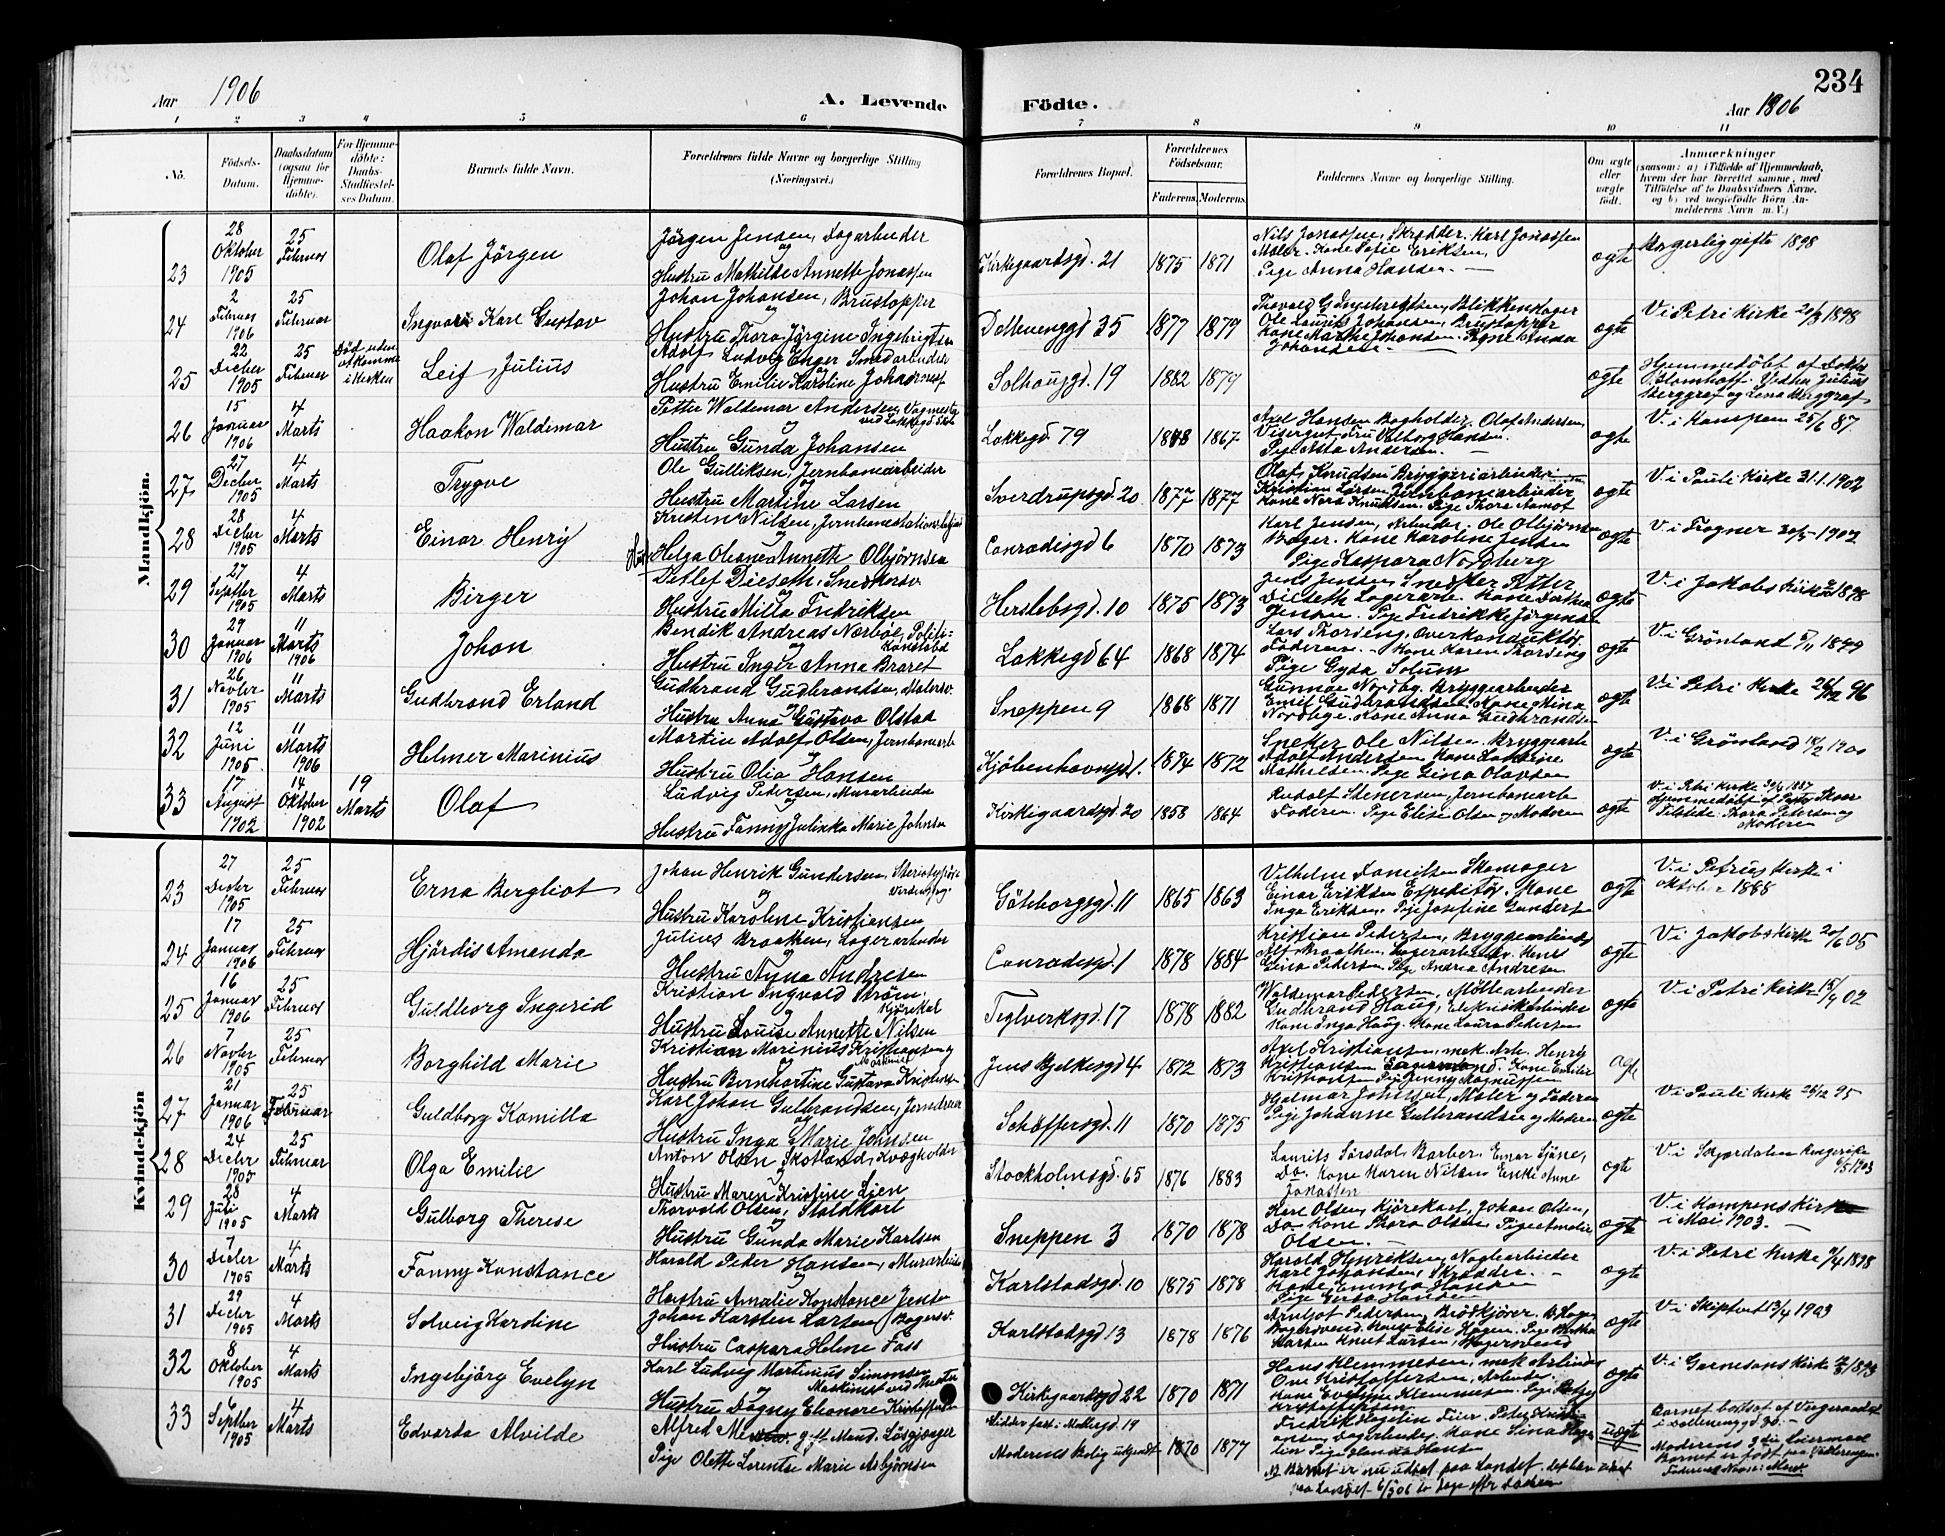 234
Aar 1906
A. Levende
Födte.
Aar 1906
1 2 3 4 5 6 7 8 9 10 11
No.
Födsels-Datum.
Daabsdatum (ogsaa for Hjemme-döbte).
For Hjemme-döbte: Daabs-Stadfæstel-ses Datum.
Barnets fulde Navn.
Forældrenes fulde Navne og borgerlige Stilling (Næringsvei.)
Forældrenes Bopæl.
Forældrenes Födselsaar.
Faderens. Moderens.
Faddernes Navne og borgerlige Stilling.
Om ægte eller uægte födt.
Anmærkninger
(saasom: a) i Tilfælde af Hjemmedaab,
hvem der har forrettet samme, med
Tilföielse af to Daabsvidners Navne,
og b) ved uægtefödte Börn An-
melderens Navn m. V.)
Mandkjön.
23 28 Oktober 1905 25 Februar Olaf Jörgen Jörgen Jensen, Dagarbeider og Hustru Mathilde Annette Jonassen Kirkegaardsgd. 21 1875 1871 Nils Jonassen, Skrædder. Karl Jonassen Maler. Kone Sofie Eriksen, Pige Anna Hansen ægte Borgerlig gifte 1898
24 2 Februar 1906 25 Februar Ingvar Karl Gustav Johan Johansen, Brustapper Hustru Thora Jörgine Ingebrigtsen Dælenenggd 35 1877 1879 Thorvald Ingebrigtsen, Blikkenslager Ole Lauritz Johansen, Brustapper Kone Marthe Johansen. Kone Anna Johansen ægte V. i Petri Kirke 20/3 1898
25 22 Decber 1905 25 Februar Död uden at komme i Kirken Leif Julius Adolf Ludvig Enger Smedarbeider og Hustru Emilie Karoline Johannesen Solhauggd. 19 1882 1879 ægte Hjemmedöbt af Doktor Blomhoff. Vidner Julius Berggraf og Lena Berggraf
26 15 Januar 1906 4 Marts Haakon Waldemar Petter Waldemar Andersen, Vagmester ved Lakkegd Skole og Hustru Gunda Johansen Lakkegd 79 1868 1867 Axel Hansen Bogholder, Olaf Andersen, Visergut. Fru Valborg Hansen. Pige Asta Andersen. ægte V. i Kampen 25/6 87
27 27 Decber 1905 4 Marts Trygve Ole Gulliksen, Jernbanearbeider og Hustru Martine Larsen Sverdrupsgd. 20 1877 1877 Olaf Knudsen Bryggeriarbeider Kristian Larsen Jernbanearbeider Kone Nora Knudsen. Pige Thora Aamot ægte V. i Pauli Kirke 31.1.1902
28 28 Decber 1905 4 Marts Einar Henry Kristen Nilsen, Jernbanestationsbetjent og Hust. Helga Oleane Annette Olbjörnsen Conradisgd 6 1870 1873 Karl Jensen, Arbeider. Ole Olbjörnsen Bager. Kone Karoline Jensen Pige Kaspara Nordberg ægte V. i Frogner 30/5 1902
29 27 Septber 1905 4 Marts Birger Detlef Dieseth, Snedkersv. og Hustru Milla Fredriksen Herslebsgd. 10 1875 1873 Jens Jensen, Snedker Dieseth Lagerarb. Kone Dorthea Jensen. Pige Fredrikke Jörgensen ægte V. i Jakobs Kirke 1898
30 29 Januar 1906 11 Marts 1906 Johan Bendik Andreas Nærböe, Politikonstabel og Hustru Inger Anna Braret Lakkegd 64 1868 1874 Lars Thorsteng, overkonduktör Faderen. Kone Karen Thorsteng Pige Gyda Solum ægte V. i Grönland 5/11 1899
31 26 Novber 1905 11 Marts Gudbrand Erland Gudbrand Gudbrandsen, Malersv. og Hustru Anna Gustava Olstad Sneppen 9 1868 1871 Gunnar Nordby, Bryggearbeider Emil Gudbrandsen. Kone Mina Nordbye. Kone Anna Gudbrandsen ægte V. i Petri Kirke 26/12 96
32 12 Juni 1905. 11 Marts 1906 Helmer Marinius Martin Adolf Olsen, Jernbanearb. og Hustru Olia Hansen Kjöbenhavnsgd 1. 1874 1872 Ole Nilsen Bryggearb. Adolf Andersen Kone Mathilsen. Pige Gina Olavsen ægte V. i Grönland 18/2 1900
33 17 August 1902 14 Oktober 1902 19 Marts Olaf Ludvig Pedersen, Murarbeider og Hustru Fanny Julinka Marie Johnsen Kirkegaardsgd. 20 1858 1864 Rudolf Stenersen, Jernbanearb. Faderen. Pige Elise Olsen og Moderen ægte V. i Petri Kirke 30/4 1887 Hjemmedöbt af Tilstede: Thora Petersen og Moderen
Kvindekjön
23 27 Decber 1905 25 Februar Erna Bergliot Johan Henrik Gundersen, og Hustru Karoline Kristiansen Göteborggd. 11 1865 1863 Vilhelm Danielsen Skomager Einar Eriksen Expeditör. Kone Inga Eriksen. Pige Josefine Gundersen ægte V. i Petrus Kirke i oktober 1888
24 17 Januar 1906 25 Februar Hjördis Amanda Julius Braathen, Lagerarbeider og Hustru Agna Andresen Conradisgd. 1 1878 1884 Kristian Pedersen, Bryggearbeider Alf Braathen, Lagerarbeider. Kone Lina Petersen. Pige Andrea Andresen ægte V. i Jakobs Kirke 20/6 05
25 16 Januar 1906 25 Februar Guldborg Ingerid Kristian Ingvald Ström. Kjörekal og Hustru Louise Annette Nilsen Teglverksgd. 17 1878 1882 Waldemar Pedersen, Möllearbeider Gudbrand Haug, Kone Inga Haug. Kone Laura Petersen ægte V. i Petri Kirke 15/9 02
26 7 Novber 1905 25 Februar Borghild Marie Kristian Marinius Kristiansen og Hustru Bernhartine Gustava Kristensen Jens Bjelkesgd 4 1872 1873 Axel Kristiansen, mek. Arb. Henry Kristiansen Kone Emilie Kristiansen Pige Jenny Magnussen ægte
27 21 Januar 1906 25 Februar Guldborg Kamilla Karl Johan Gulbrandsen, Jerndreier og Hustru Inga Marie Johnsen Schöffersgd. 11 1870 1875 Hjalmar Johnsen, Maler og Faderen Pige Johanne Gulbrandsen og Moderen ægte V. i Pauli Kirke 26/12 95
28 24 Decber 1905 25 Februar Olga Emilie Anton Olsen Skotland, Kvægholder og Hustru Maren Kristine Lien Stockholmsgd. 65 1876 1883 Laurits Sörsdal, Barber. Einar Sjöne, Do. Kone Maren Nilsen Enke Anne Jonassen ægte V. i Skjærdalen Ringerike 6/5 1903
29 28 Juli 1905 4 Marts Gulborg Therese Thorvald Olsen, Staldkarl og Hustru Gunda Marie Karlsen Sneppen 3 1870 1878 Karl Olsen, Kjörekarl, Johan Olsen, Do. Kone Thora Olsen, Pige Amalie Olsen. ægte V. i Kampens Kirke i Mai 1903.
30 7 Decber 1905 4 Marts Fanny Konstance Harald Peder Hansen, Murarbeider og Hustru Amalie Konstance Jensen Karlstadsgd. 10 1875 1878 Harald Henriksen, Vognarbeider Karl Johansen, Skrædder. Kone Emma Hansen Pige Gerda Hansen ægte V. i Petri Kirke 9/4 1898
31 29 Decber 1905 4 Marts Solveig Karoline Johan Karsten Larsen, Bagersv. Hustru Caspara Helene Foss Karlstadsgd 13 1878 1876 Arnljot Pedersen, Brödkjörer, B. Hagen Bagersvend. Kone Elise Hagen. Pige Bertha Larsen Knut Larsen, Bagersvend ægte V. i Skiptvet 13/4 1903
32 8 Oktober 1905 4 Marts Ingebjörg Evelyn Karl Ludvig Martinius Simonsen Maskinist ved og Hustru Dagny Eleonore Kristoffersen Kirkegaardsgd 22 1870 1871 Hans Klemmetsen, mek. Arbeider Ove Kristoffersen, Arbeider. Kone Eveline Klemmetsen. Pige Kristoffersen. ægte V. i Garnisons Kirke 1893
33 6 Septber 1905 4 Marts Edvarda Alvilde Alfred gift Mand. Lösgjænger Pige Olette Lorentse Marie Asbjörnsen Sidder fast i Möllergd. 19 Moderens Bolig ukjendt 1870 1877 Fredrik Hagelin Feier, Peter Dagarbeider. Kone Lina Hagelin Pige Hansen uægte Barnet bortsat af Værgeraadet i Dælenenggd 30. Moderens 9de Leiermaal Barnet er födt paa Vaalerengen. Faderens Navn:
NB Barnet er nu udsat paa Landet, det blev paa Landet 6/3 06 to Dage efter Daaben